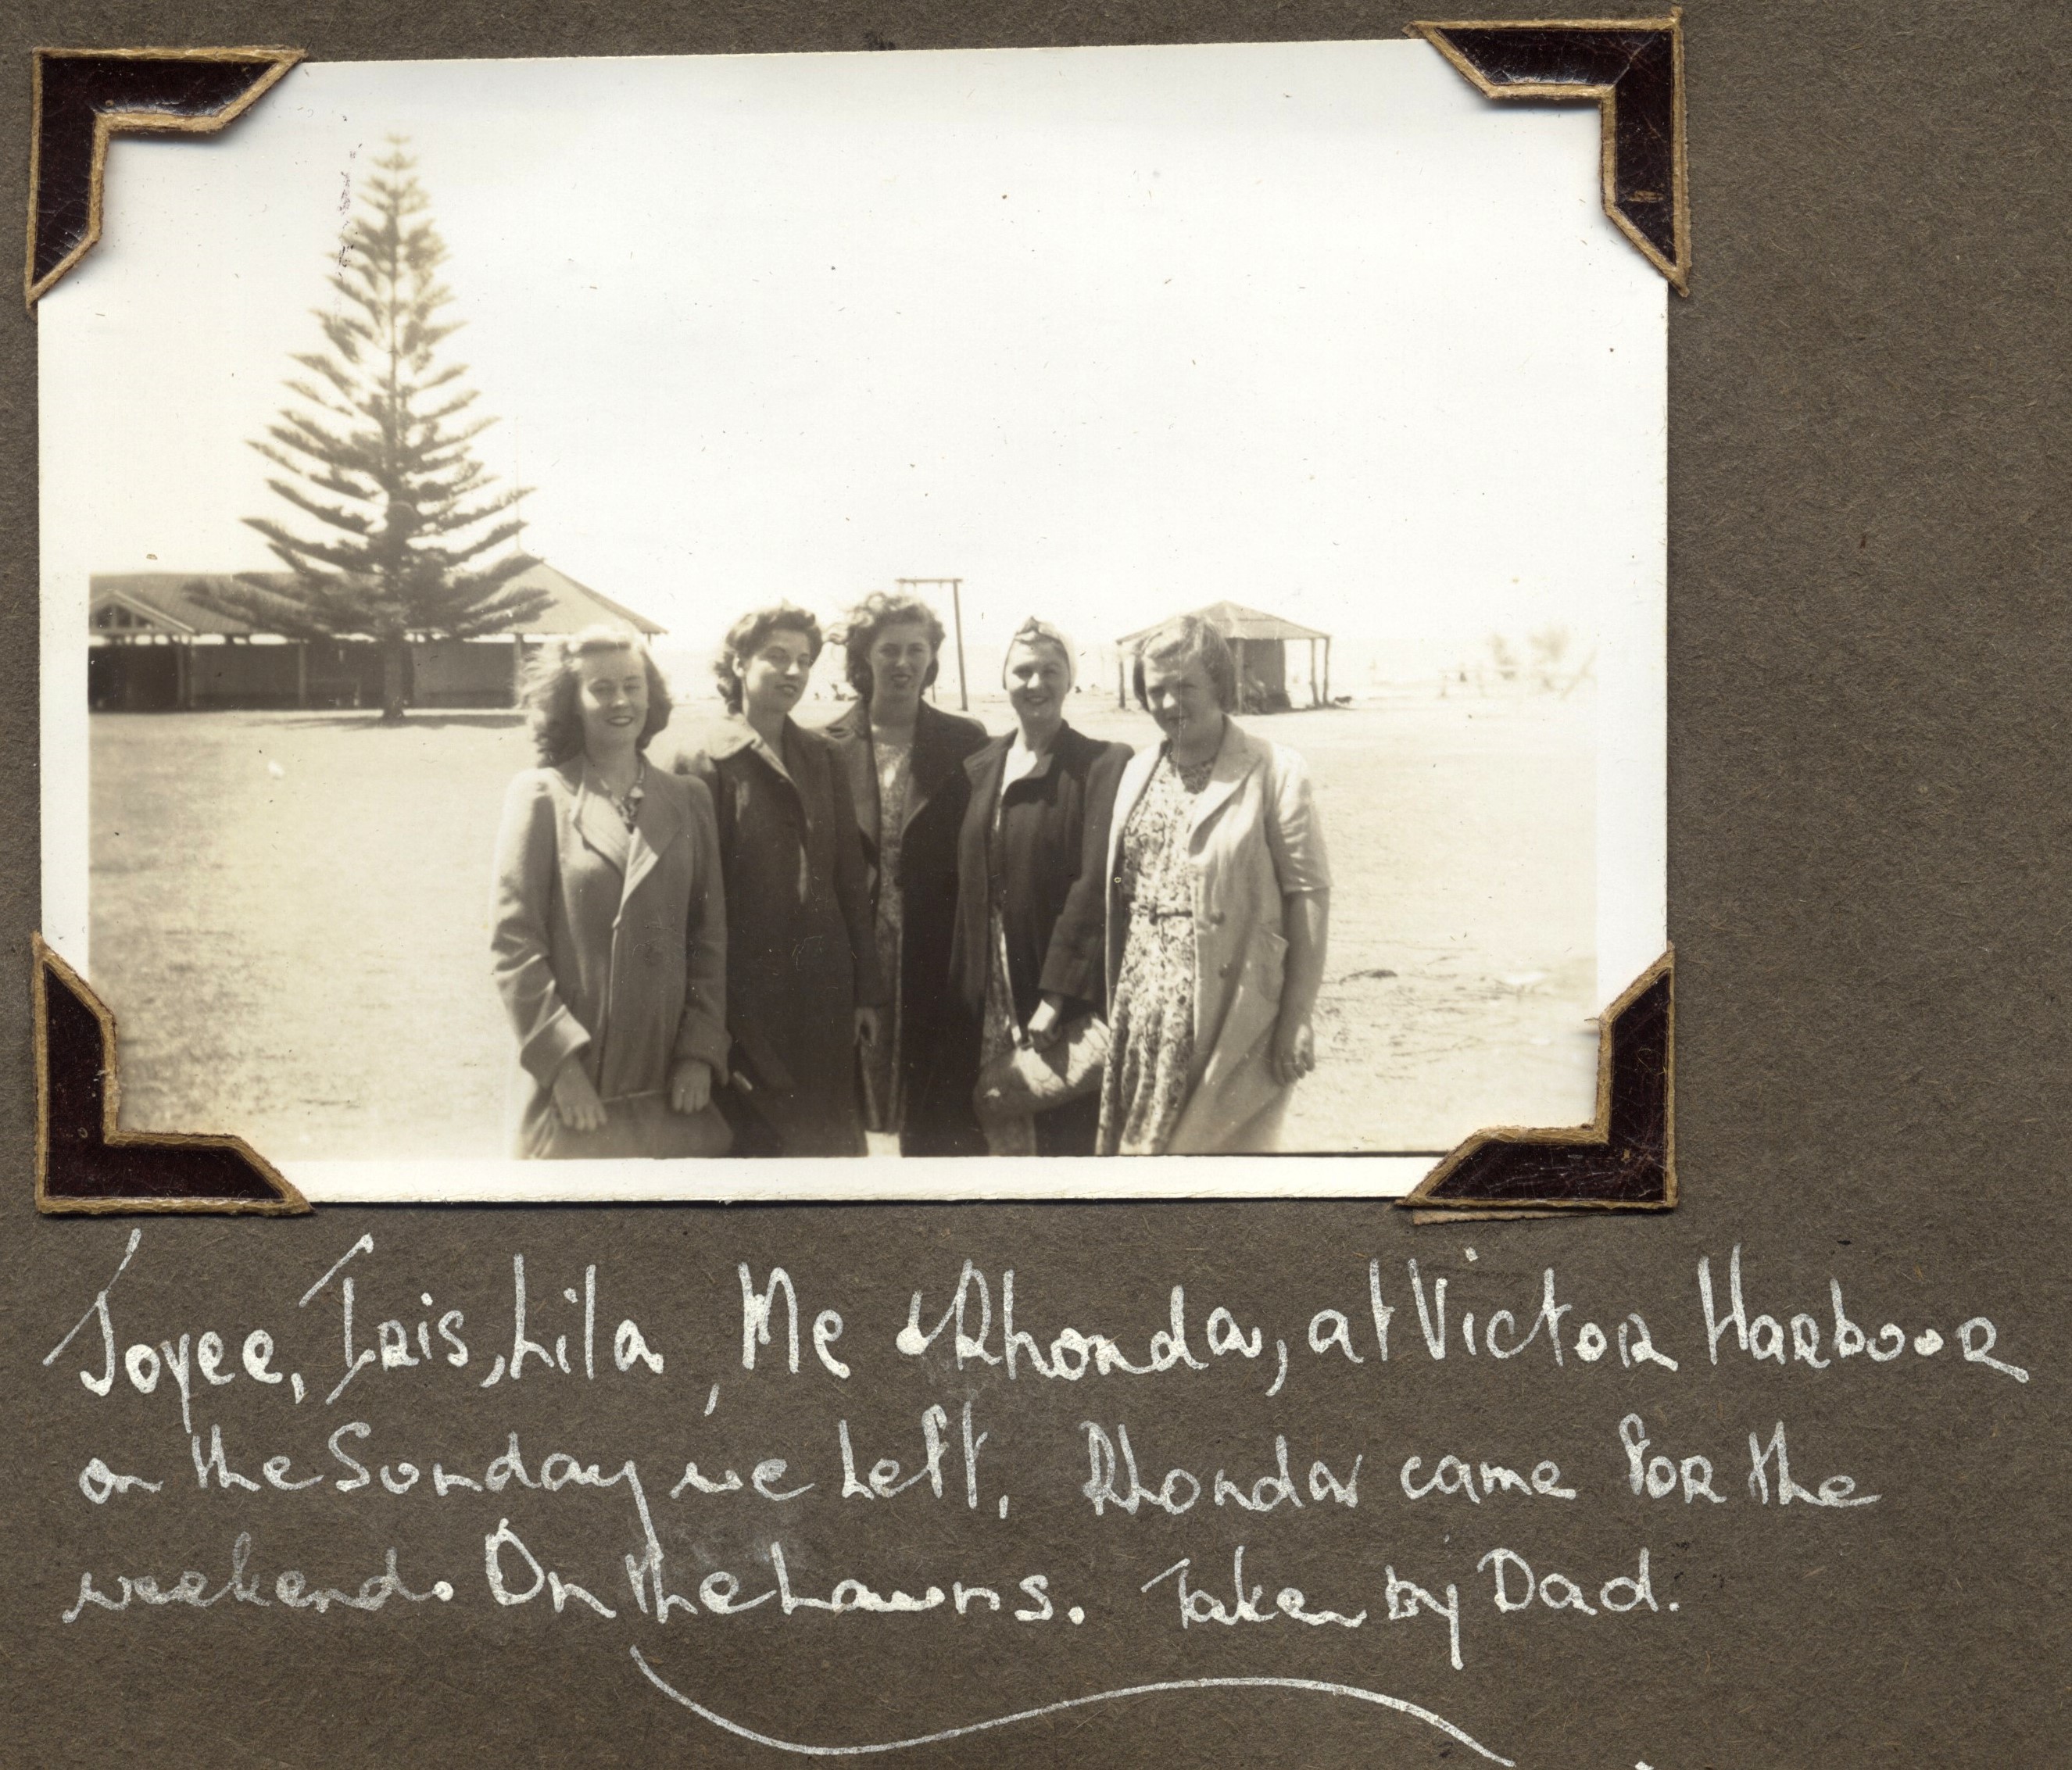 Joyce, Iris, Lila, Me & Rhonda, at Victor Harbour
on the Sunday we Left. Rhonda came for the
weekend. On the Lawns. Taken by Dad.